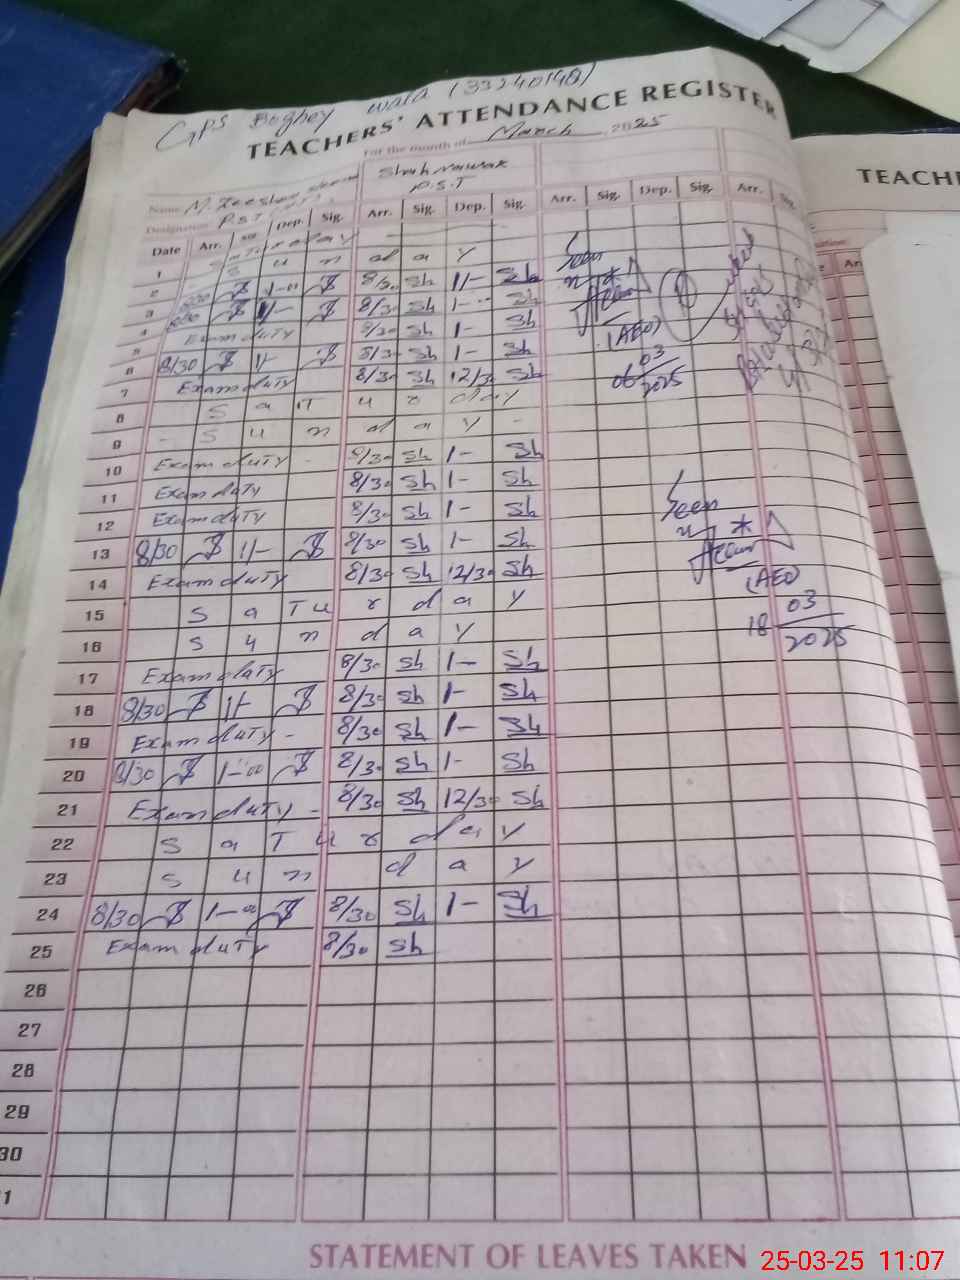 GPS Boghey wala (33240148)
TEACHERS' ATTENDANCE REGISTER
For the month of March, 2025
Name M. Zeeshan Shahnawaz
Designation P.S.T P.S.T
Date Arr. Sig. Dep. Sig. Arr. Sig. Dep. Sig. Arr. Sig. Dep. Sig. Arr.
1 Saturday
2 S u n d a y
3 8/30 1-00 8/30 Sh 1- Sh
4 8/30 1- 8/30 Sh 1- Sh
5 Exam duty 8/30 Sh 1- Sh
6 8/30 1- 8/30 Sh 1- Sh
7 Exam duty 8/30 Sh 12/30 Sh
8 S a T u r day
9 - S u n d a y -
10 Exam duTy - 8/30 Sh 1- Sh
11 Exam duty 8/30 Sh 1- Sh
12 Exam duTy 8/30 Sh 1- Sh
13 8/30 1- 8/30 Sh 1- Sh
14 Exam duTy 8/30 Sh 12/30 Sh
15 S a T u r d a y
16 S u n d a y
17 Exam duTy 8/30 Sh 1- Sh
18 8/30 1- 8/30 Sh 1- Sh
19 Exam duTy - 8/30 Sh 1- Sh
20 8/30 1-00 8/30 Sh 1- Sh
21 Exam duTy - 8/30 Sh 12/30 Sh
22 S a T u r d a y
23 S u n d a y
24 8/30 1-00 8/30 Sh 1- Sh
25 Exam duTy 8/30 Sh
26
27
28
29
30
1
Seen
(AEO)
06 03
2025
Seen
(AEO)
18 03
2025
TEACHE
STATEMENT OF LEAVES TAKEN
25-03-25 11:07